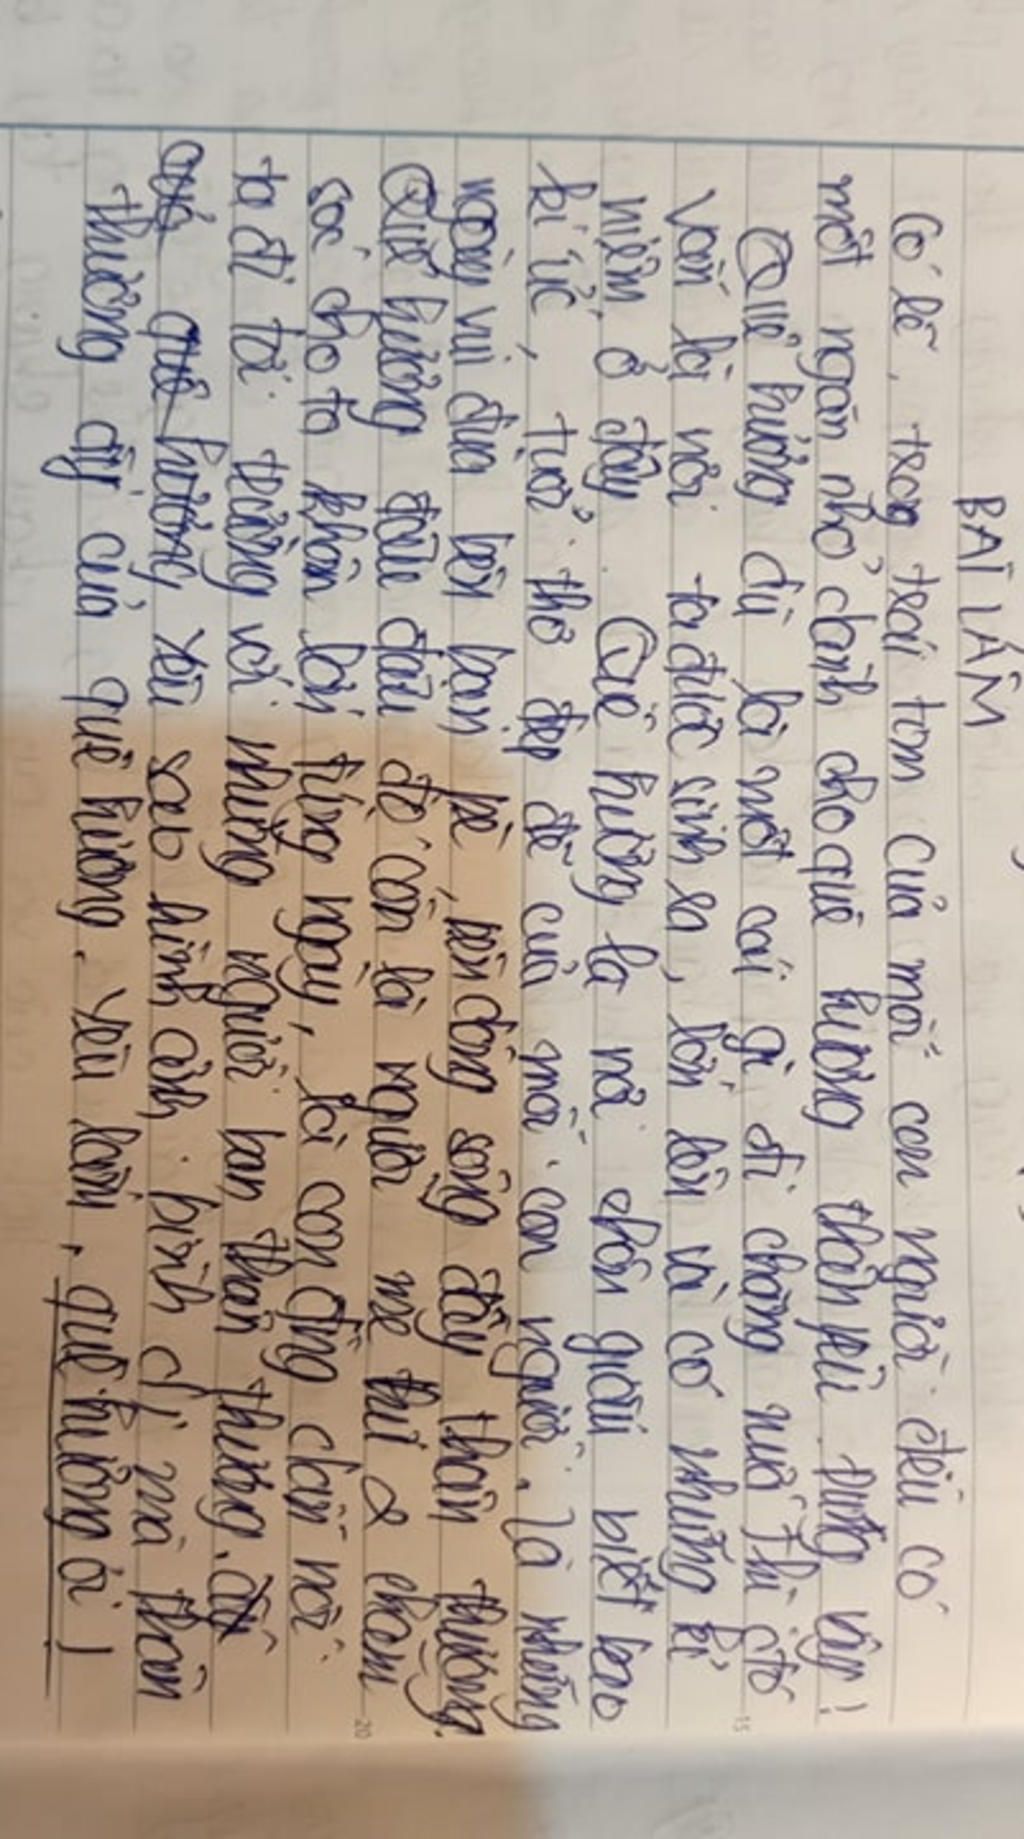 BÀI LÀM
Có lẽ, trong trái tim của mỗi con người đều có
một ngăn nhỏ dành cho quê hương thân yêu. Đúng vậy!
Quê hương dù là một cái gì đi chăng nữa thì đó
vẫn là nơi ta được sinh ra, lớn lên và có những kỉ
niệm ở đây. Quê hương là nơi chôn giấu biết bao
kí ức, tuổi thơ đẹp đẽ của mỗi con người, là những
ngày vui đùa bên bạn bè, bên dòng sông đầy thân thương.
Quê hương đâu đâu đó còn là người mẹ thứ 2 chăm
sóc cho ta khôn lớn từng ngày, là con đường dẫn nối
ta đi tới trường với những người bạn thân thương. Ôi
quê hương sao bình dị mà thân
thương ấy của quê hương. Yêu lắm, quê hương ơi!